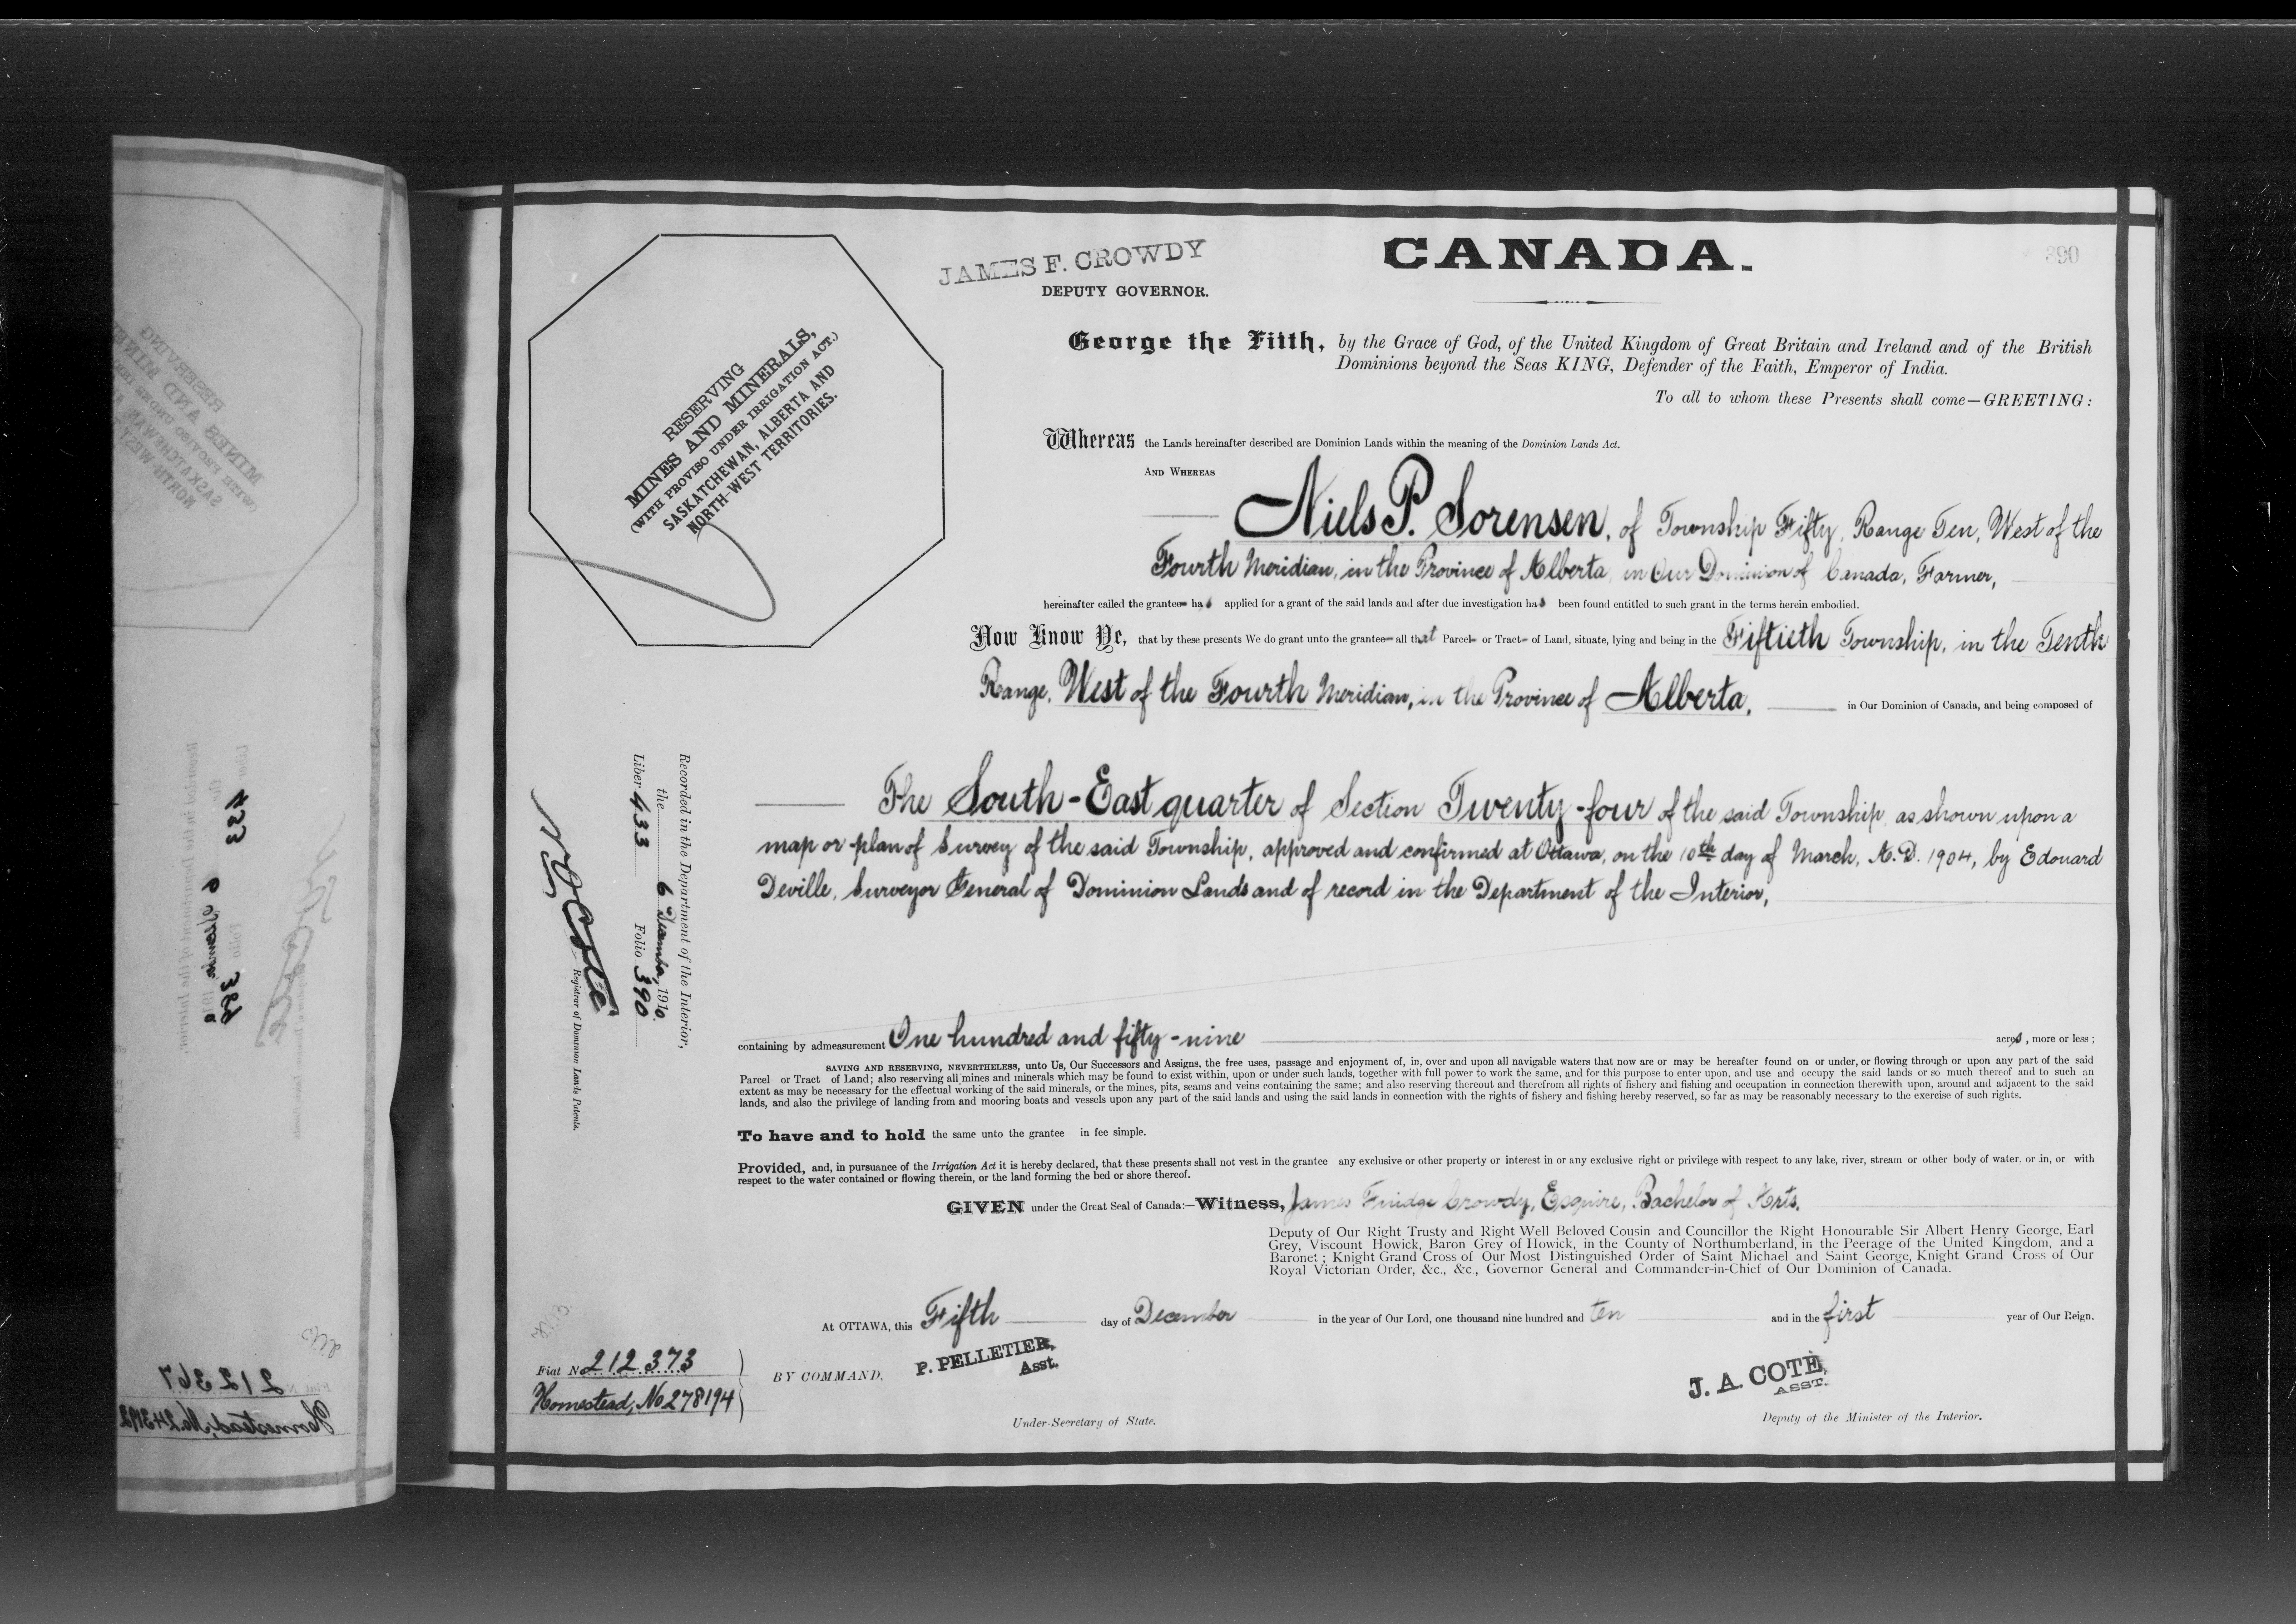 JAMES F. CROWDY
DEPUTY GOVERNOR.
CANADA.
390
RESERVING
MINES AND MINERALS,
(WITH PROVISO UNDER IRRIGATION ACT.)
SASKATCHEWAN, ALBERTA AND
NORTH-WEST TERRITORIES.
George the Fifth, by the Grace of God, of the United Kingdom of Great Britain and Ireland and of the British
Dominions beyond the Seas KING, Defender of the Faith, Emperor of India.
To all to whom these Presents shall come—GREETING:
Whereas the Lands hereinafter described are Dominion Lands within the meaning of the Dominion Lands Act.
AND WHEREAS
Niels P. Sorensen, of Township Fifty, Range Ten, West of the
Fourth Meridian, in the Province of Alberta, in Our Dominion of Canada, Farmer,
hereinafter called the grantee has applied for a grant of the said lands and after due investigation has been found entitled to such grant in the terms herein embodied.
Now Know Ye, that by these presents We do grant unto the grantee all that Parcel or Tract of Land, situate, lying and being in the Fiftieth Township, in the Tenth
Range, West of the Fourth Meridian, in the Province of Alberta, in Our Dominion of Canada, and being composed of
The South-East quarter of Section Twenty-four of the said Township, as shown upon a
map or plan of Survey of the said Township, approved and confirmed at Ottawa, on the 10th day of March, A.D. 1904, by Edouard
Deville, Surveyor General of Dominion Lands and of record in the Department of the Interior,
Recorded in the Department of the Interior,
the 6 December, 1910.
Liber 433 Folio 390
N O Coté
Registrar of Dominion Lands Patents.
containing by admeasurement One hundred and fifty-nine acres, more or less;
SAVING AND RESERVING, NEVERTHELESS, unto Us, Our Successors and Assigns, the free uses, passage and enjoyment of, in, over and upon all navigable waters that now are or may be hereafter found on or under, or flowing through or upon any part of the said
Parcel or Tract of Land; also reserving all mines and minerals which may be found to exist within, upon or under such lands, together with full power to work the same, and for this purpose to enter upon, and use and occupy the said lands or so much thereof and to such an
extent as may be necessary for the effectual working of the said minerals, or the mines, pits, seams and veins containing the same; and also reserving thereout and therefrom all rights of fishery and fishing and occupation in connection therewith upon, around and adjacent to the said
lands, and also the privilege of landing from and mooring boats and vessels upon any part of the said lands and using the said lands in connection with the rights of fishery and fishing hereby reserved, so far as may be reasonably necessary to the exercise of such rights.
To have and to hold the same unto the grantee in fee simple.
Provided, and, in pursuance of the Irrigation Act it is hereby declared, that these presents shall not vest in the grantee any exclusive or other property or interest in or any exclusive right or privilege with respect to any lake, river, stream or other body of water, or in, or with
respect to the water contained or flowing therein, or the land forming the bed or shore thereof.
GIVEN under the Great Seal of Canada:—Witness, James Fridge Crowdy, Esquire, Bachelor of Arts,
Deputy of Our Right Trusty and Right Well Beloved Cousin and Councillor the Right Honourable Sir Albert Henry George, Earl
Grey, Viscount Howick, Baron Grey of Howick, in the County of Northumberland, in the Peerage of the United Kingdom, and a
Baronet; Knight Grand Cross of Our Most Distinguished Order of Saint Michael and Saint George, Knight Grand Cross of Our
Royal Victorian Order, &c., &c., Governor General and Commander-in-Chief of Our Dominion of Canada.
At OTTAWA, this Fifth day of December in the year of Our Lord, one thousand nine hundred and ten and in the first year of Our Reign.
Fiat No 212373
Homestead, No 278194
BY COMMAND,
P. PELLETIER,
Asst.
Under-Secretary of State.
J. A. COTÉ,
ASST.
Deputy of the Minister of the Interior.